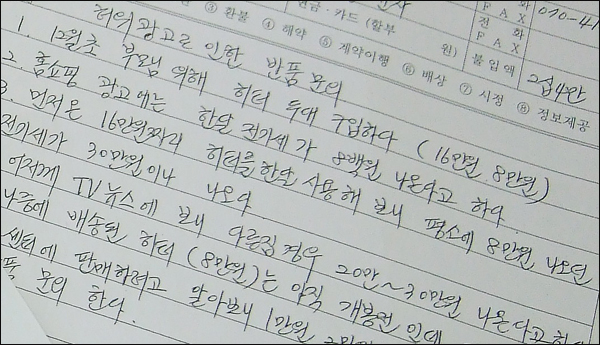 전화
FAX
070-41
현금·카드 (할부
원)
전화
FAX
불입액
2접4만
③ 환불 ④ 해약 ⑤ 계약이행 ⑥ 배상 ⑦ 시정 ⑧ 정보제공
허위광고로 인한 반품문의
1. 12월초 부모님 위해 히터 두대 구입하다 (16만원 8만원)
2. 홈쇼핑 광고에는 한달 전기세가 8백원 나온다고 하다.
3. 먼저온 16만원짜리 히터를 한달 사용해 보니 평소에 8만원 나오던
전기세가 30만원이나 나오다
어저께 TV뉴스에 보니 다른집 경우 20만~30만원 나온다고 하
나중에 배송된 히터 (8만원)는 아직 개봉전인데
센터에 판매하려고 알아보니 1만원
품 문의 한다.